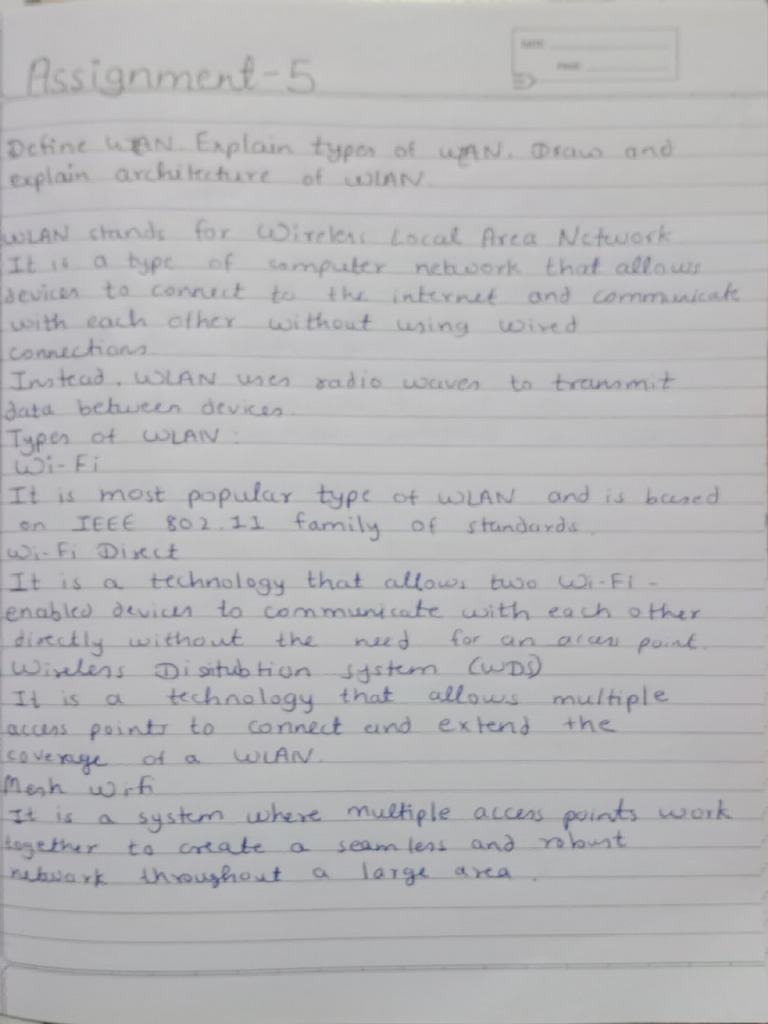 DATE:
PAGE:
Assignment-5
Define WLAN. Explain types of WLAN. Draw and
explain architecture of WLAN.
WLAN stands for Wireless Local Area Network
It is a type of computer network that allows
devices to connect to the internet and communicate
with each other without using wired
connections.
Instead, WLAN uses radio waves to transmit
data between devices.
Types of WLAN :
Wi-Fi
It is most popular type of WLAN and is based
on IEEE 802.11 family of standards.
Wi-Fi Direct
It is a technology that allows two Wi-Fi-
enabled devices to communicate with each other
directly without the need for an access point.
Wireless Disitubtion system (WDS)
It is a technology that allows multiple
access points to connect and extend the
coverage of a WLAN.
Mesh Wifi
It is a system where multiple access points work
together to create a seamless and robust
network throughout a large area.